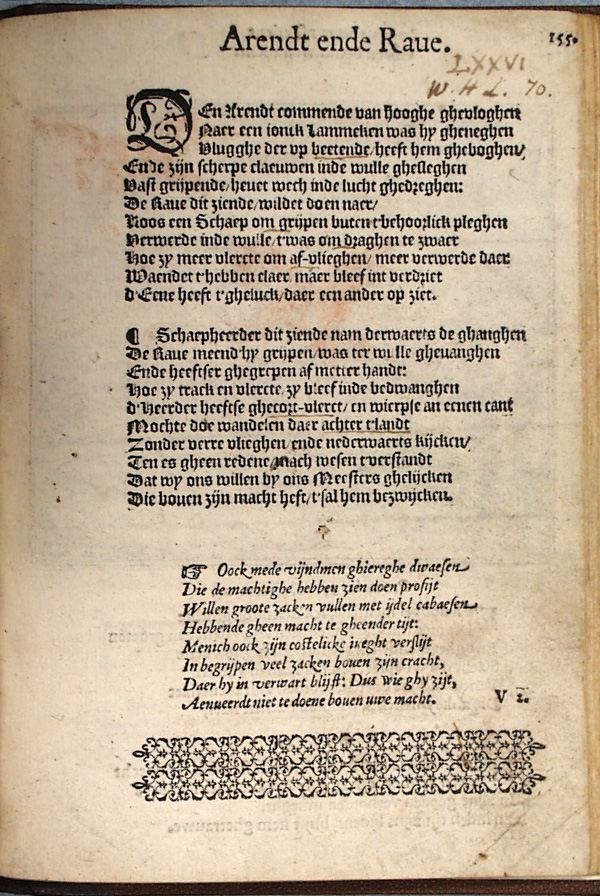 Arendt ende Raue.
155.
LXXVI
W. H L. 70.
DEn Arendt commende van hooghe ghevloghen
Naer een ionck Lammeken was hy gheneghen
Vlugghe der vp beetende/heeft hem gheboghen/
Ende zijn scherpe claeuwen inde wulle ghesleghen
Vast grijpende/heuet wech inde lucht ghedreghen:
De Raue dit ziende/wildet doen naer/
Koos een Schaep om grijpen buten t'behoorlick pleghen
Verwerde inde wulle/t'was om draghen te zwaer
Hoe zy meer vlercte om af-vlieghen/meer verwerde daer
Waendet t'hebben claer/maer bleef int verdriet
d'Eene heeft t'gheluck/daer een ander op ziet.
¶ Schaepheerder dit ziende nam derwaerts de ghanghen
De Raue meend'hy grijpen/was ter wulle gheuanghen
Ende heeftser ghegrepen af metter handt:
Hoe zy track en vlercte/zy bleef inde bedwanghen
d'Heerder heeftse ghecort-vlerct/en wierpse an eenen cant
Mochte doe wandelen daer achter t'landt
Zonder verre vlieghen/ende nederwaerts kijcken/
Ten es gheen redene/mach wesen t'verstandt
Dat wy ons willen by ons Meesters ghelijcken
Die bouen zijn macht heft/t'sal hem bezwijcken.
☞ Oock mede vijndmen ghiereghe dwaesen
Die de machtighe hebben zien doen profijt
Willen groote zacken vullen met ijdel cabaesen
Hebbende gheen macht te gheender tijt:
Menich oock zijn costelicke weght verslijt
In begrijpen veel zacken bouen zijn cracht,
Daer hy in verwart blijft: Dus wie ghy zijt,
Aenueerdt niet te doene bouen uwe macht.
V 2.